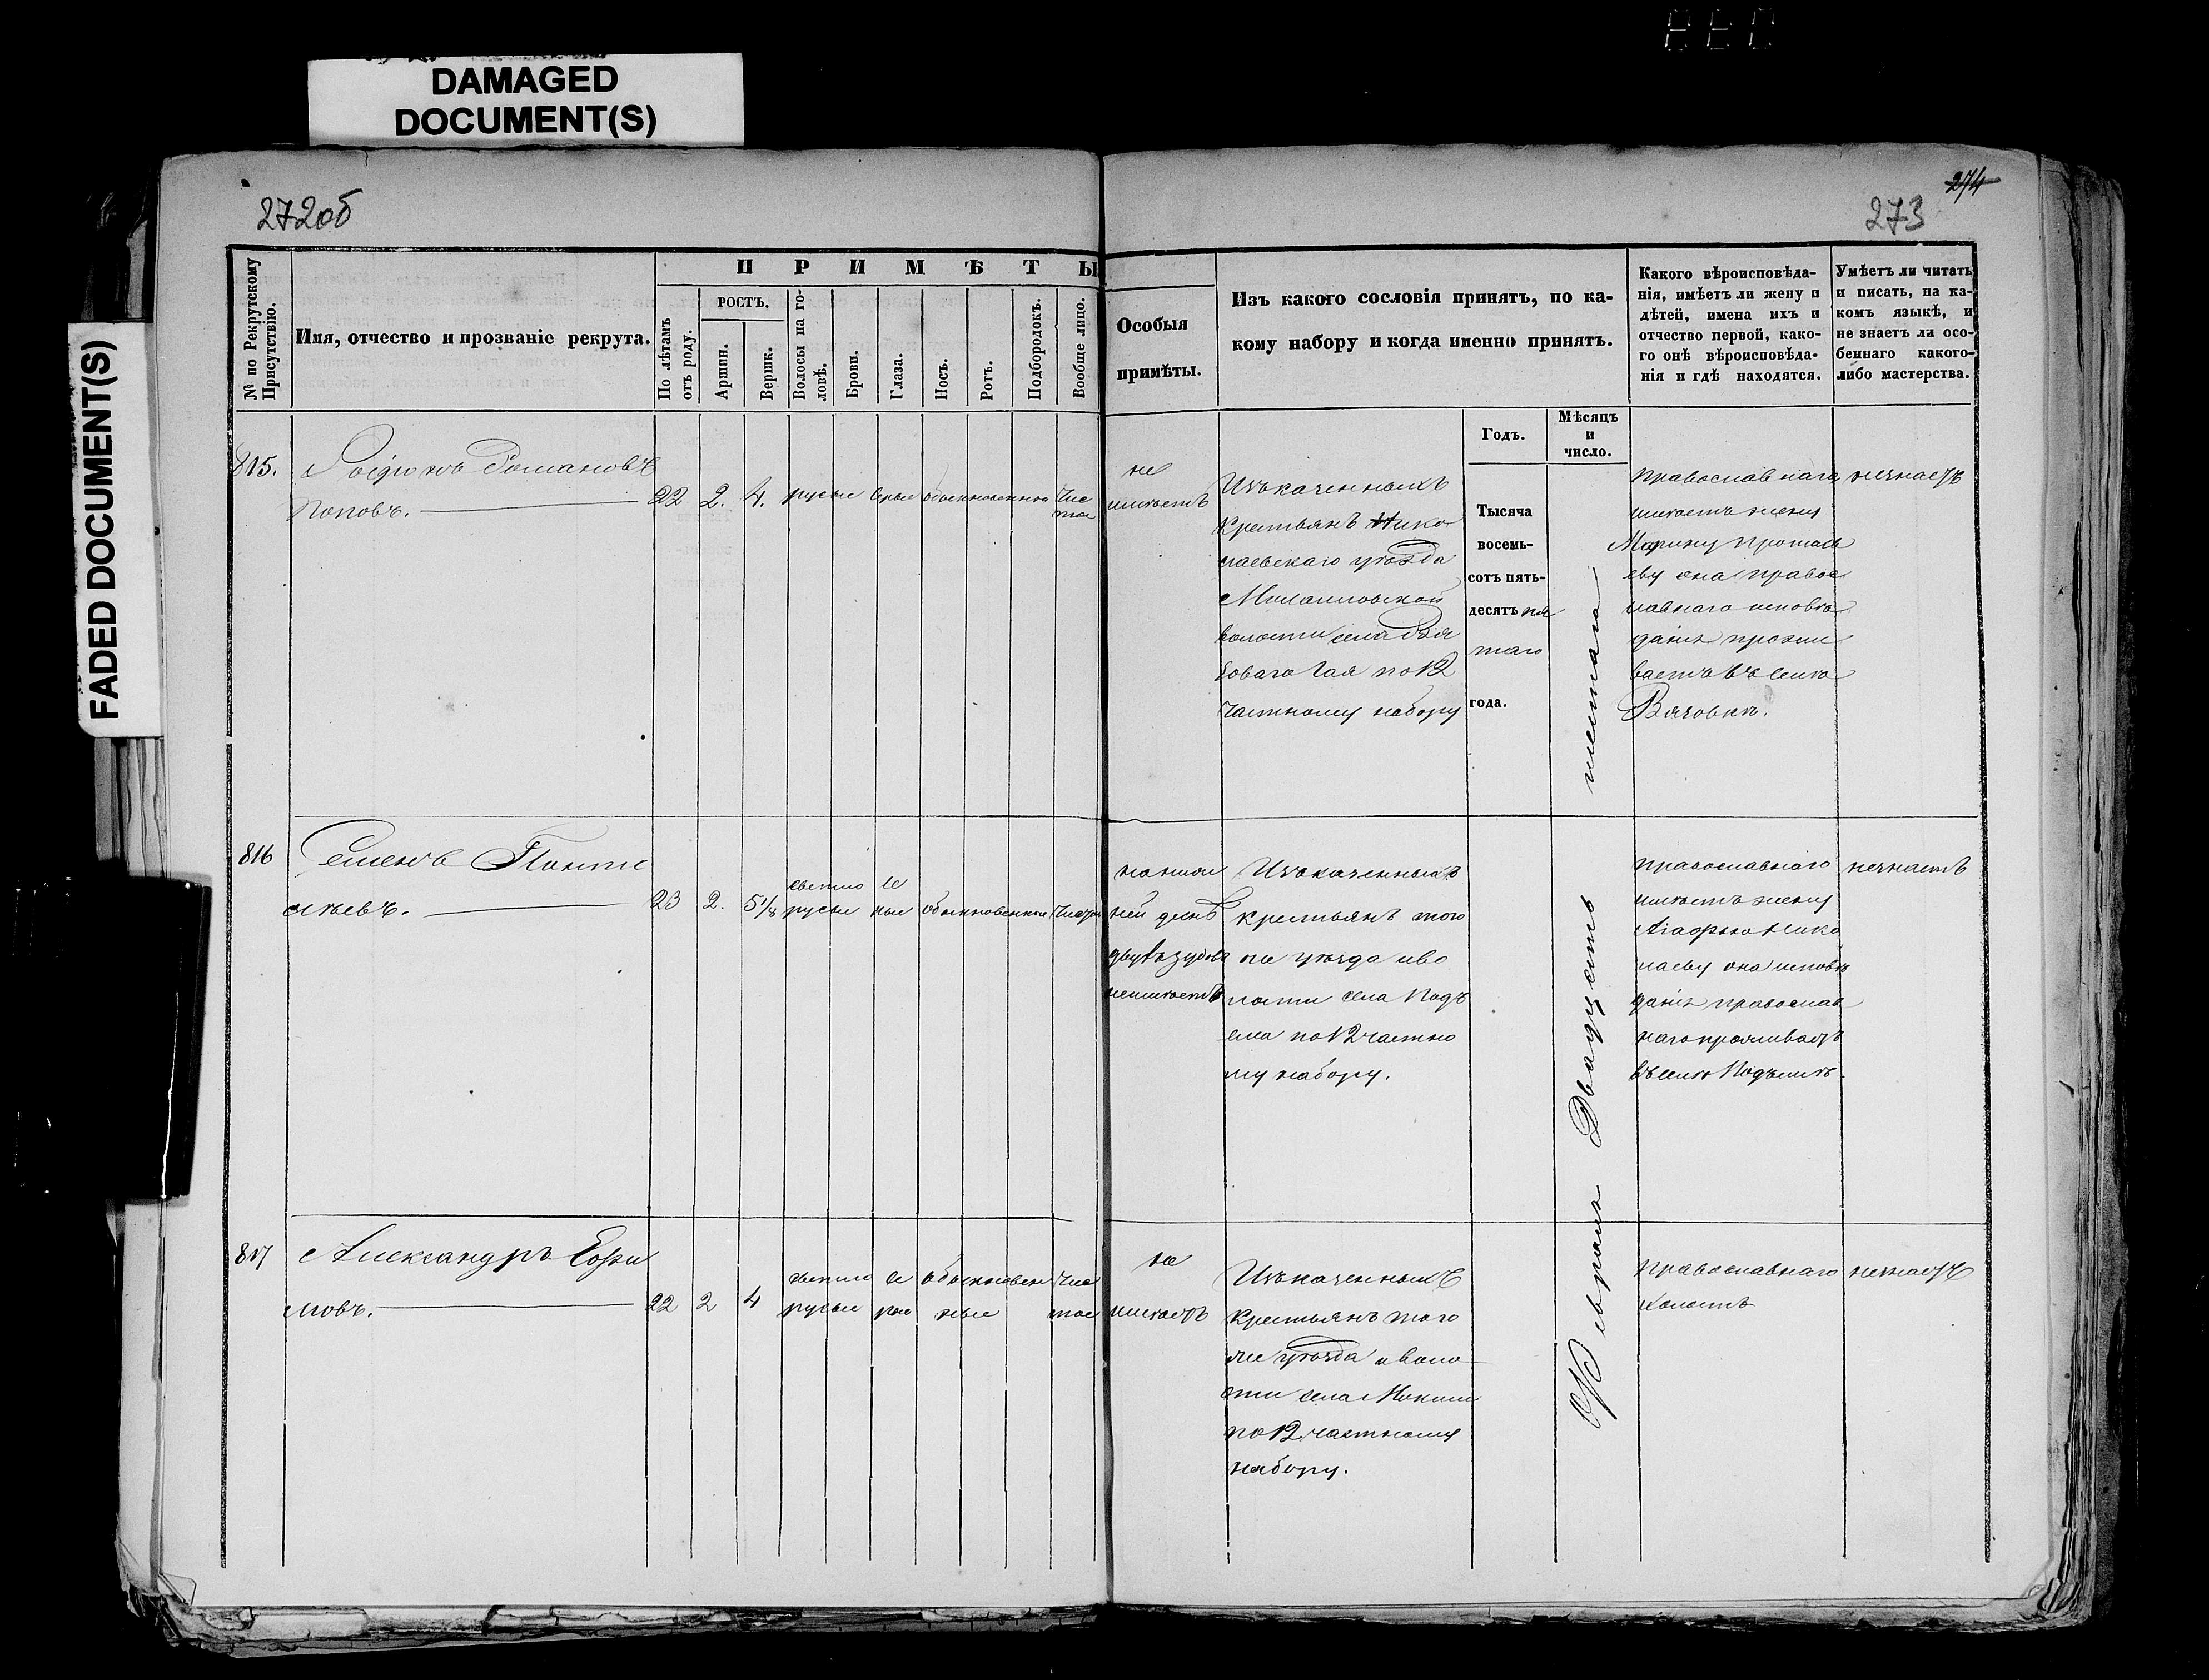 DAMAGED
DOCUMENT(S)
FADED DOCUMENT(S)
272об
274
273
№ по Рекрутскому
Присутствію.
Имя, отчество и прозваніе рекрута.
ПРИМѢТЫ
По лѣтамъ
отъ роду.
РОСТЪ.
Аршин.
Вершк.
Волосы на го-
ловѣ.
Брови.
Глаза.
Носъ.
Ротъ.
Подбородокъ.
Вообще лицо.
Особыя
примѣты.
Изъ какого сословія принятъ, по ка-
кому набору и когда именно принятъ.
Годъ.
Мѣсяцъ
и
число.
Какого вѣроисповѣда-
нія, имѣетъ ли жену и
дѣтей, имена ихъ и
отчество первой, како-
го онѣ вѣроисповѣда-
нія и гдѣ находятся.
Умѣетъ ли читать
и писать, на ка-
комъ языкѣ, и
не знаетъ ли осо-
беннаго какого-
либо мастерства.
815.
Родіонъ Романовъ
Поповъ.
22 2. 4. русые серые обыкновенные Чис
тое
не
имѣетъ
Изъ казенныхъ
крестьянъ Нико
лаевскаго уѣзда
волости села
боваго Гая по 12
частному набору
Тысяча
восемь-
сотъ пять-
десятъ пя
таго
года.
Февраля Двадцать шестаго
Православнаго
имѣетъ жену
Марину
еву она правос
лавнаго исповѣ
данія прожи
ваетъ въ селѣ
Вязовкѣ.
незнаетъ
816
Семенъ Панти
лѣевъ.
23 2. 5 1/8 светло
русые обыкновенные Чистое
ней десне
двухъ зубовъ
неимѣетъ
Изъ казенныхъ
крестьянъ того
же уѣзда и во
лости села Подъ
ема по 12 частно
му набору.
православнаго
имѣетъ жену
Агафью Нико
лаеву она исповѣ
данія православ
наго проживаетъ
въ селѣ Подъемѣ.
незнаетъ
817
Александръ Ефи
мовъ.
22 2 4 светло
русые се
рые обыкновен
ные Чис
тое
не
имѣетъ
Изъ казенныхъ
крестьянъ того
же уѣзда и воло
сти села Мокши
по 12 частному
набору.
Православнаго
холостъ
незнаетъ